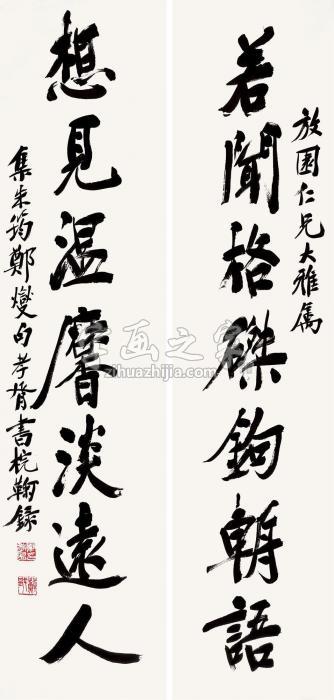 放園仁兄大雅属
若聞格磔鉤輈語
想見温黁淡遠人
集朱筠鄭燮句孝胥書杭鞠録
字画之家
zihuazhijia.com